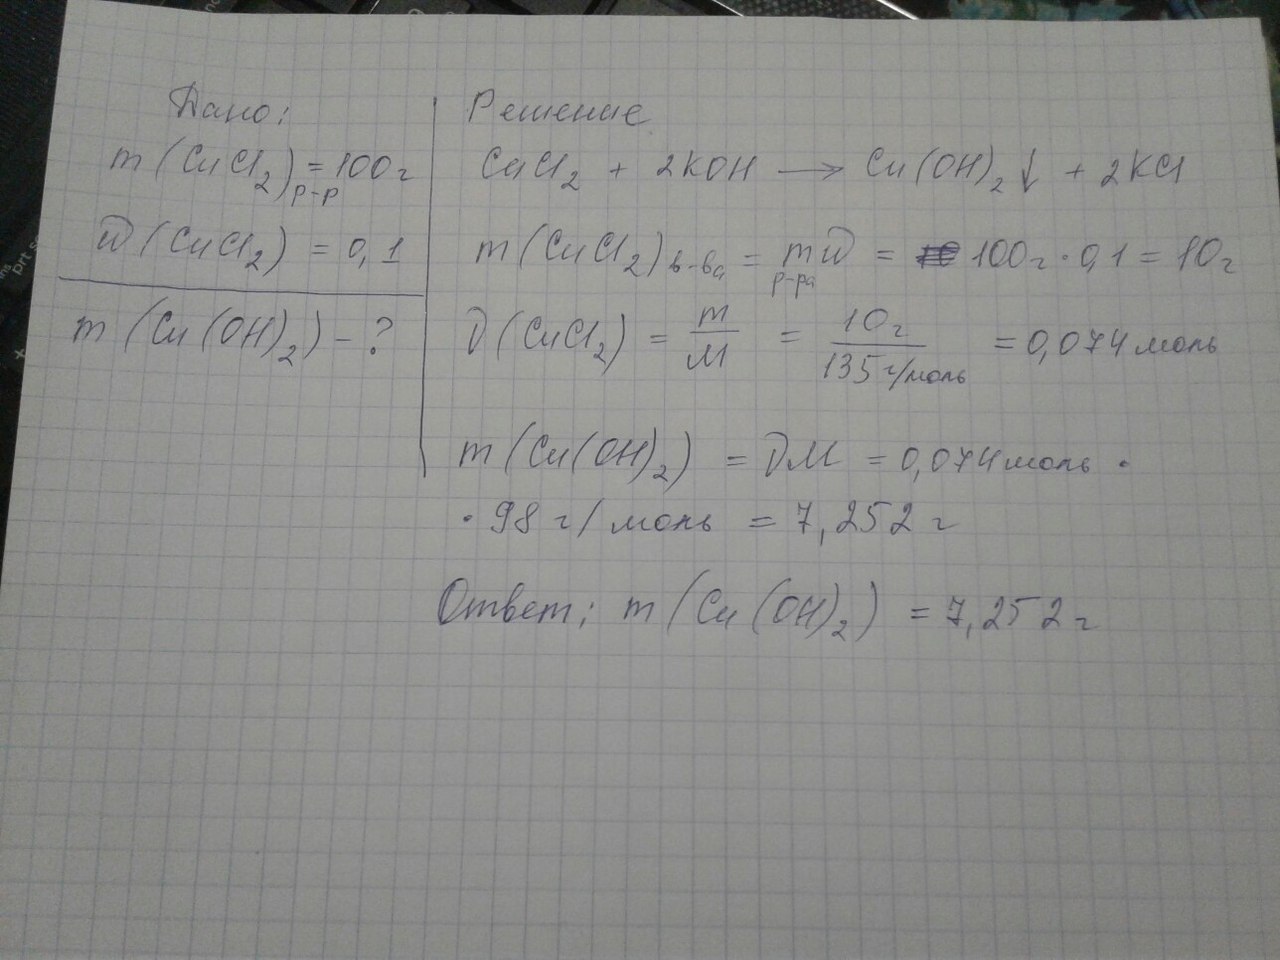 Дано:
m(CuCl2)р-р = 100г
w(CuCl2) = 0,1
m(Cu(OH)2) - ?
Решение
CuCl2 + 2KOH → Cu(OH)2↓ + 2KCl
m(CuCl2)в-ва = mр-раw = 100г · 0,1 = 10г
υ(CuCl2) = m/M = 10г/135г/моль = 0,074моль
m(Cu(OH)2) = υM = 0,074моль ·
· 98г/моль = 7,252г
Ответ: m(Cu(OH)2) = 7,252г